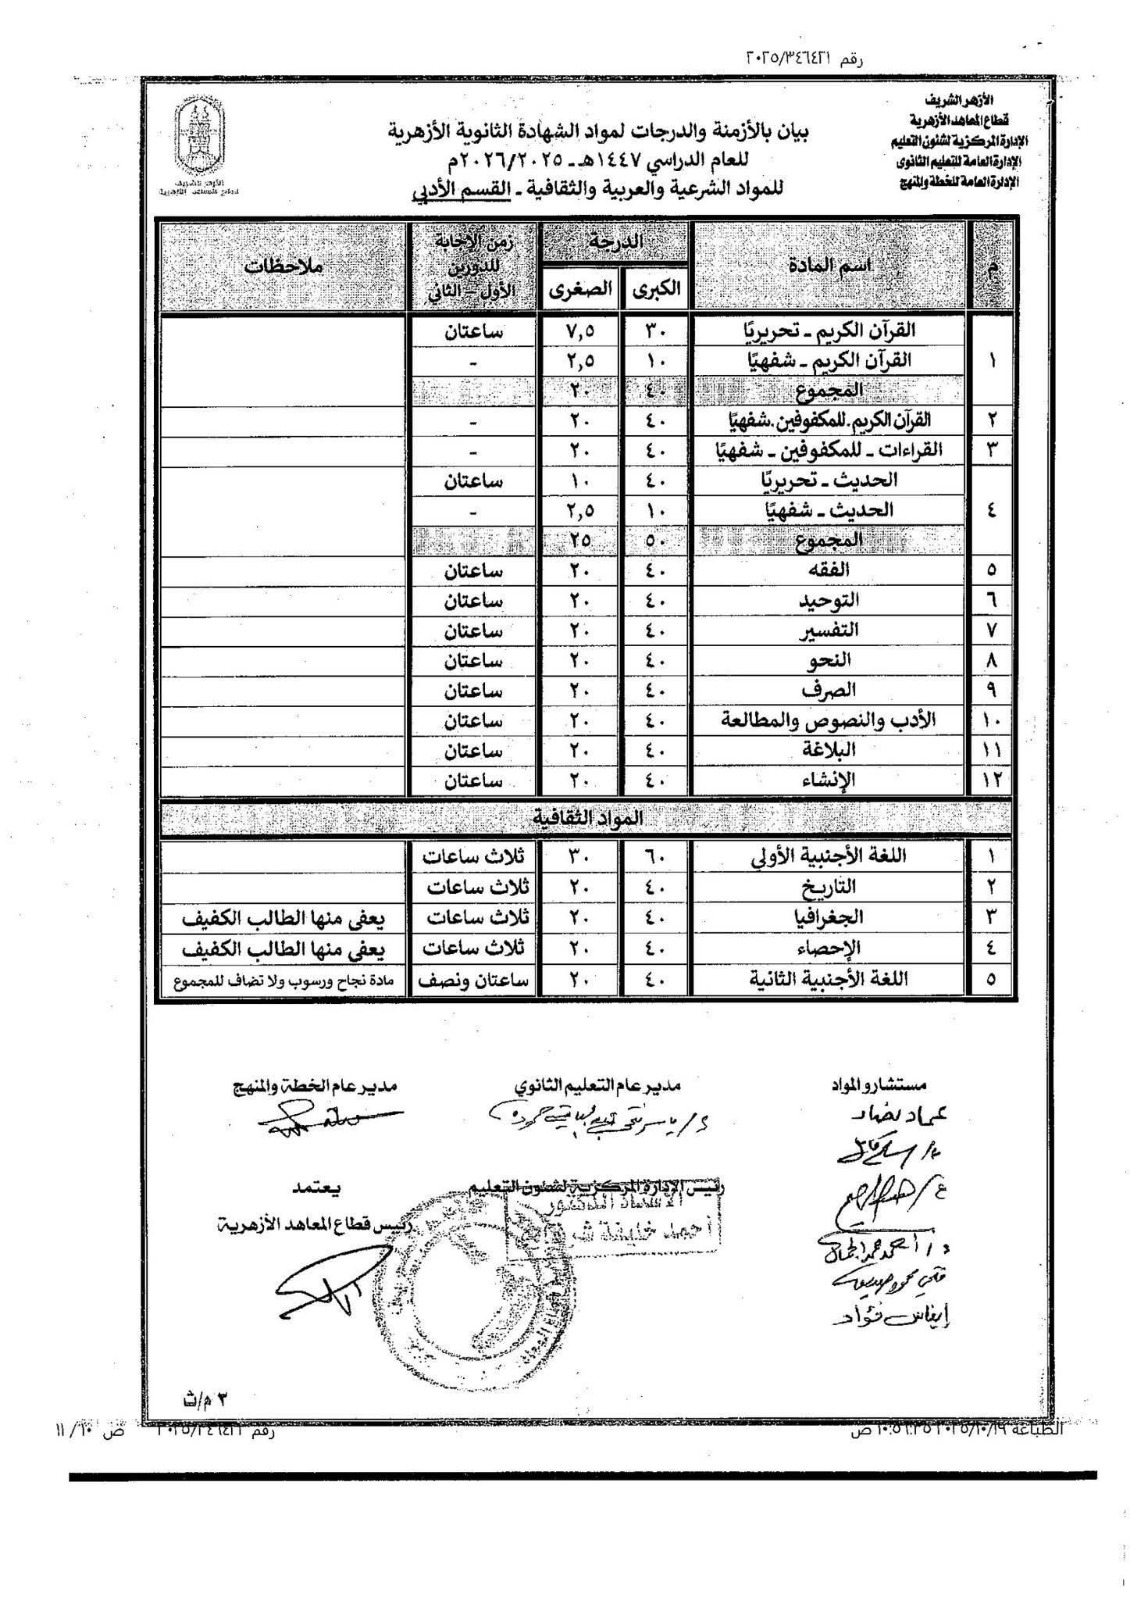 رقم ٢٠٢٥/٣٤٦٤٢١
الأزهر الشريف
قطاع المعاهد الأزهرية
الإدارة المركزية لشئون التعليم
الإدارة العامة للتعليم الثانوى
الإدارة العامة للخطة والمنهج
بيان بالأزمنة والدرجات لمواد الشهادة الثانوية الأزهرية
للعام الدراسي ١٤٤٧هـ - ٢٠٢٦/٢٠٢٥م
للمواد الشرعية والعربية والثقافية - القسم الأدبي
الأزهر الشريف
قطاع المعاهد الأزهرية
م اسم المادة الدرجة الكبرى الصغرى زمن الإجابة للدورين الأول - الثاني ملاحظات
١ القرآن الكريم - تحريريًا ٣٠ ٧,٥ ساعتان
القرآن الكريم - شفهيًا ١٠ ٢,٥ -
المجموع ٤٠ ٢٠
٢ القرآن الكريم. للمكفوفين. شفهيًا ٤٠ ٢٠ -
٣ القراءات - للمكفوفين - شفهيًا ٤٠ ٢٠ -
٤ الحديث - تحريريًا ٤٠ ١٠ ساعتان
الحديث - شفهيًا ١٠ ٢,٥ -
المجموع ٥٠ ٢٥
٥ الفقه ٤٠ ٢٠ ساعتان
٦ التوحيد ٤٠ ٢٠ ساعتان
٧ التفسير ٤٠ ٢٠ ساعتان
٨ النحو ٤٠ ٢٠ ساعتان
٩ الصرف ٤٠ ٢٠ ساعتان
١٠ الأدب والنصوص والمطالعة ٤٠ ٢٠ ساعتان
١١ البلاغة ٤٠ ٢٠ ساعتان
١٢ الإنشاء ٤٠ ٢٠ ساعتان
المواد الثقافية
١ اللغة الأجنبية الأولى ٦٠ ٣٠ ثلاث ساعات
٢ التاريخ ٤٠ ٢٠ ثلاث ساعات
٣ الجغرافيا ٤٠ ٢٠ ثلاث ساعات يعفى منها الطالب الكفيف
٤ الإحصاء ٤٠ ٢٠ ثلاث ساعات يعفى منها الطالب الكفيف
٥ اللغة الأجنبية الثانية ٤٠ ٢٠ ساعتان ونصف مادة نجاح ورسوب ولا تضاف للمجموع
مستشارو المواد مدير عام التعليم الثانوي مدير عام الخطة والمنهج
رئيس الإدارة المركزية لشئون التعليم يعتمد
الأستاذ الدكتور
أحمد خليفة
رئيس قطاع المعاهد الأزهرية
إيناس فؤاد
٣ م/ث
الطباعة ٢٠٢٥/١٠/١٩ ١٠:٥٦:٣٥ ص رقم ٢٠٢٥/٣٤٦٤٢١ ص ١٠/ ١١